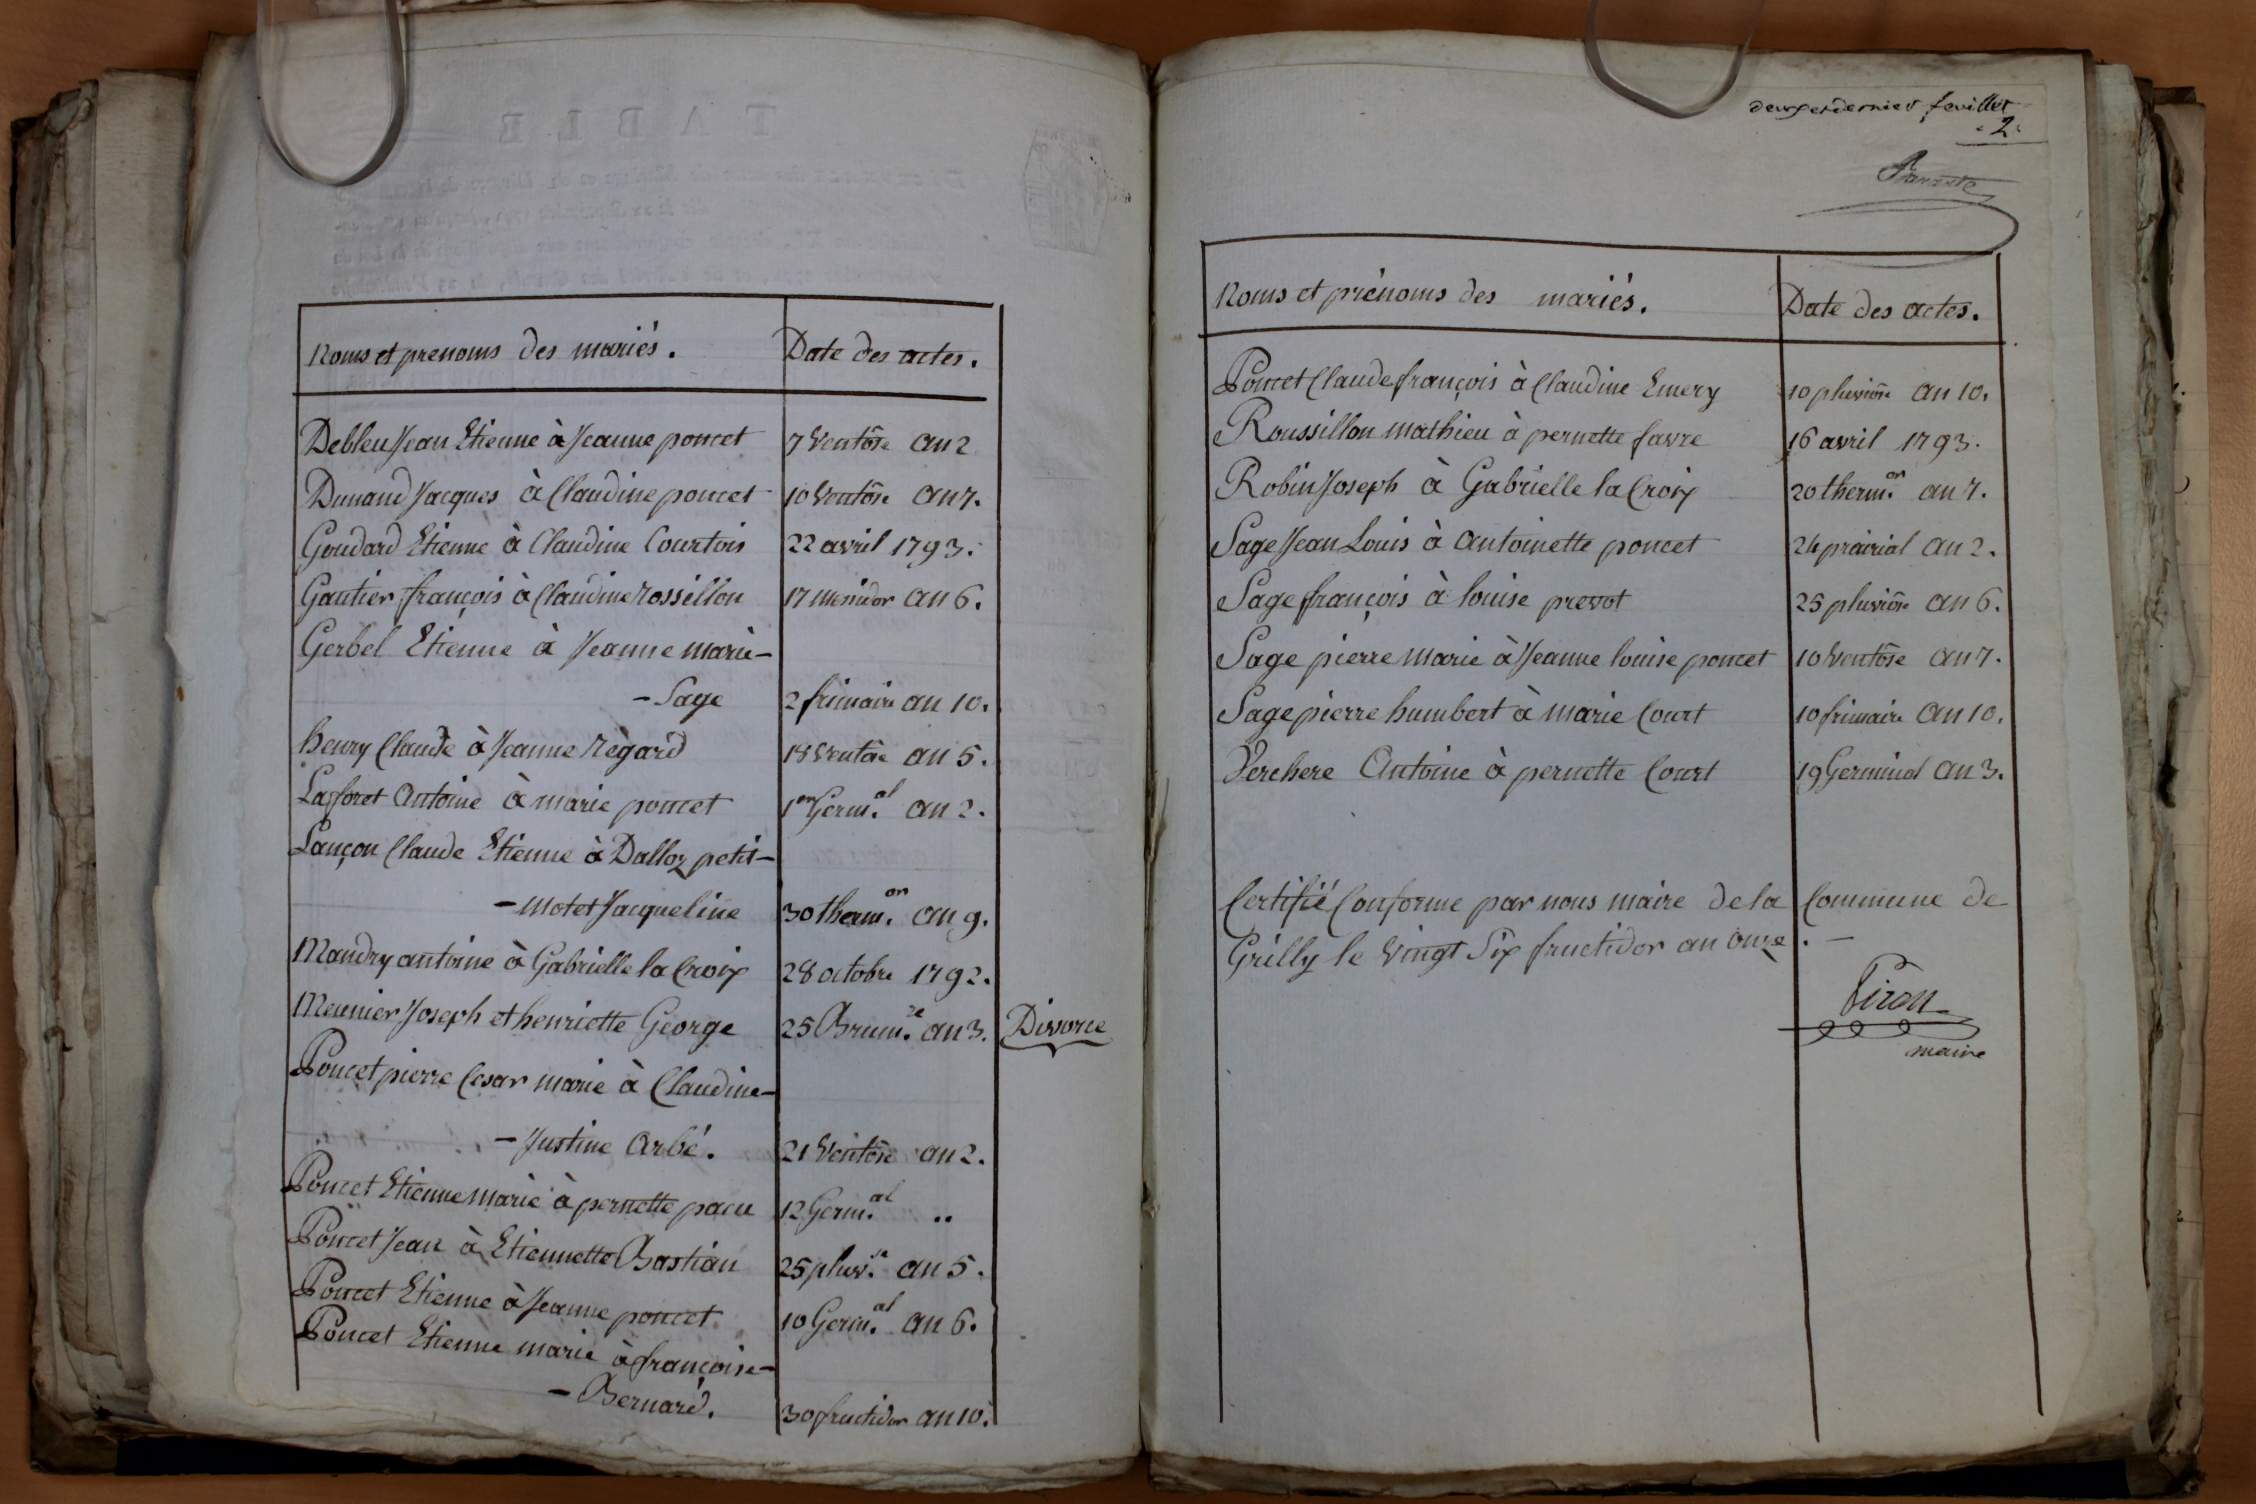 Noms et prenoms des mariés. Date des actes.
Debleu Jean Etienne à Jeanne poncet 7 Ventôse an 2
Dunand Jacques à Claudine poncet 10 Ventôse an 7.
Goudard Etienne à Claudine Courtois 22 avril 1793.
Gautier françois à Claudine rossillon 17 messidor an 6.
Gerbel Etienne à Jeanne marie-
- Sage 2 frimaire an 10.
henry Claude à Jeanne Régard 18 Ventôse an 5.
Laforet Antoine à marie poncet 1er Germ.al an 2.
Lançon Claude Etienne à Dalloz petit-
- motet Jacqueline 30 therm.or an 9.
Maudry antoine à Gabrielle la Croix 28 octobre 1792.
Meunier Joseph et henriette George 25 Brum.re an 3. Divorce
Poncet pierre Cesar marie à Claudine-
- Justine Arbé. 21 Ventôse an 2.
Poncet Etienne marie à pernette pacu 12 Germ.al ..
Poncet Jean à Etiennette Bastian 25 pluv.se an 5.
Poncet Etienne à Jeanne poncet 10 Germ.al an 6.
Poncet Etienne marie à françoise-
- Bernard. 30 fructidor an 10.
deux et dernier feuillet
2
Noms et prénoms des mariés. Date des actes.
Poncet Claude françois à Claudine Emery 10 pluviôse an 10.
Roussillon mathieu à pernette favre 16 avril 1793.
Robin Joseph à Gabrielle la Croix 20 therm.or an 7.
Sage Jean Louis à antoinette poncet 24 prairial an 2.
Sage françois à louise prevot 25 pluviôse an 6.
Sage pierre marie à Jeanne louise poncet 10 Ventôse an 7.
Sage pierre humbert à marie Court 10 frimaire an 10.
Verchere Antoine à pernette Court 19 Germinal an 3.
Certifié Conforme par nous maire de la Commune de
Grilly le vingt Six fructidor an onze. -
Piron
maire